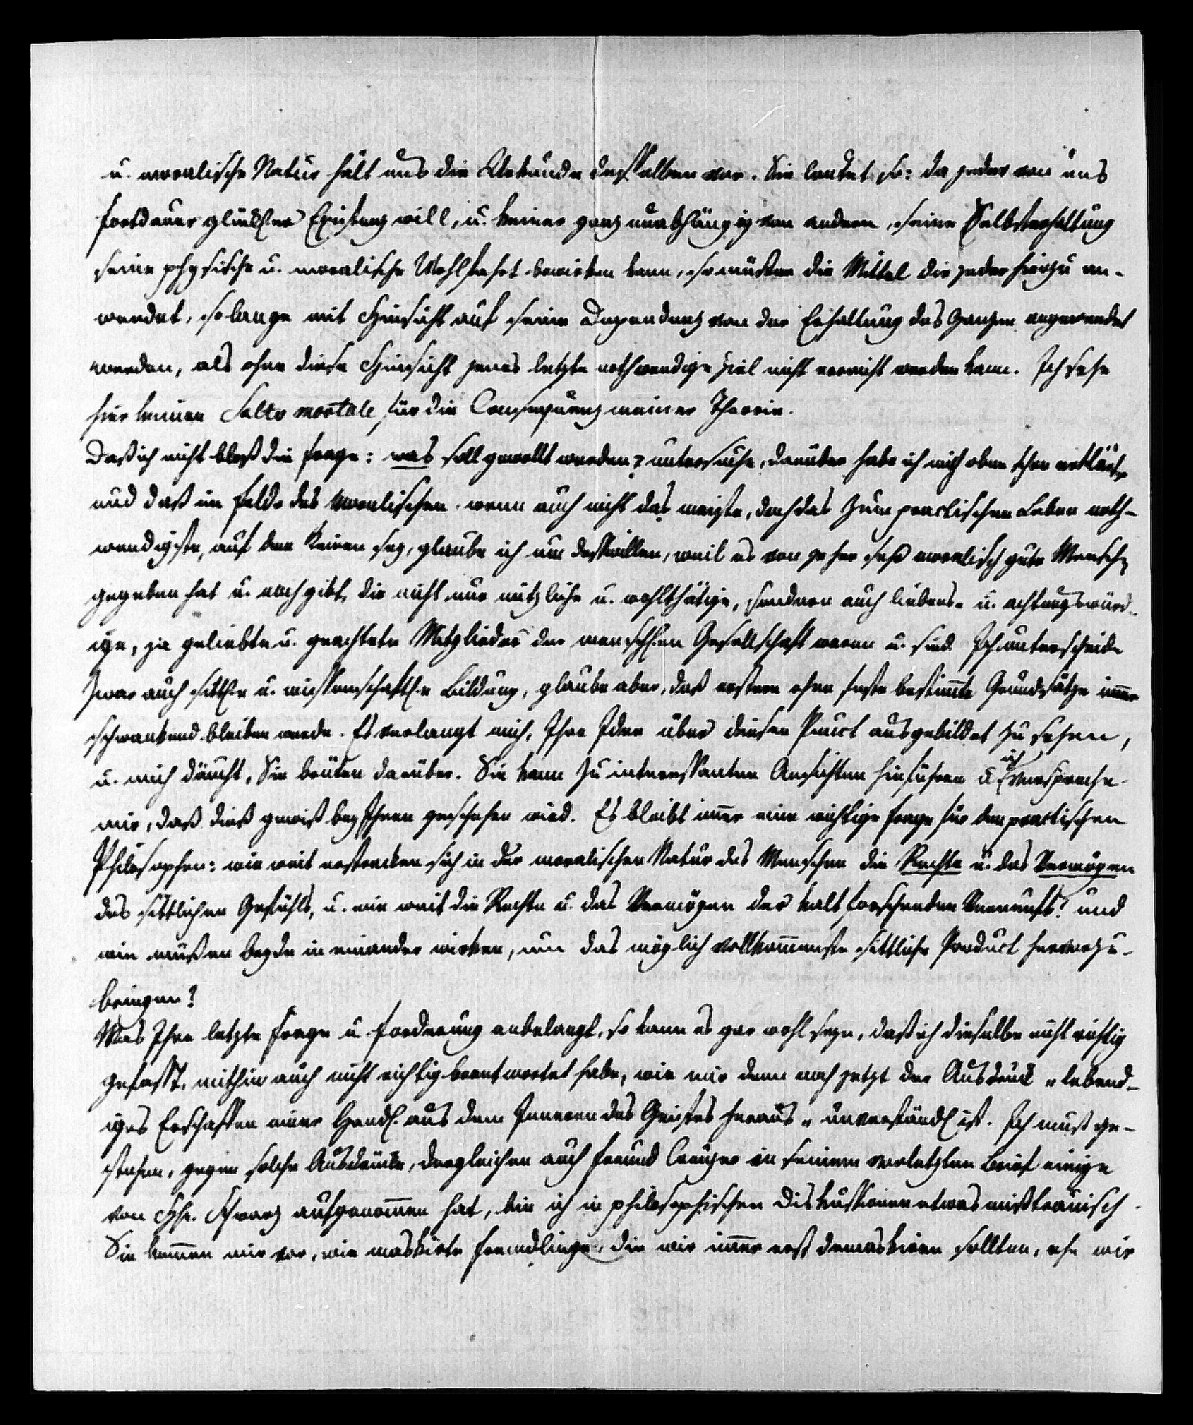 u. moralische Natur hält uns die Urkunde desselben vor. Sie lautet so: da jeder von uns
fortdauer glückl.er Existenz will, u. keiner ganz unabhängig von andern, seine Selbsterhaltung
seine physische u. moralische Wohlfahrt bewirken kann, so müssen die Mittel die jeder hiezu an-
wendet, solange mit Hinsicht auf seine Dependenz von der Erhaltung des Ganzen angewendet
werden, als ohne diese Hinsicht jenes letzte nothwendige Ziel nicht erreicht werden kann. Ich sehe
hier keinen Salto mortale, für die Consequenz meiner Theorie.
Daß ich nicht bloß die Frage: was soll gewollt werden? untersuche, darüber habe ich mich oben schon erklärt,
und daß im Felde des Moralischen wenn auch nicht das meiste, doch das zum practischen Leben noth-
wendigste, auf dem Reinen sey, glaube ich um deßwillen, weil es von jeher sehr moralisch gute Mensch
gegeben hat u. noch gibt, die nicht nur nützliche u. wohlthätige, sondern auch liebens- u. achtungswürd-
ige, ja geliebte u. geachtete Mitglieder der menschl.en Gesellschaft waren u. sind. Ich unterscheide
zwar auch sittl.e u. wissenschaftl.e Bildung, glaube aber, daß erstere ohne feste bestimte Grundsätze imer
schwankend bleiben werde. Es verlangt mich, Ihre Idee über diesen Punct ausgebildet zu sehen,
u. mich däucht, Sie brüten darüber. Sie kann zu interessanten Ansichten hinführen u. ich verspreche
mir, daß dieß gewiß bey Ihnen geschehen wird. Es bleibt imer eine wichtige Frage für den practischen
Philosophen: wie weit erstrecken sich in der moralischen Natur des Menschen die Rechte u. das Vermögen
des sittlichen Gefühls, u. wie weit die Rechte u. das Vermögen der kalt forschenden Vernunft? und
wie müßen beyde in einander wirken, um das möglich vollkommenste sittliche Product hervorzu-
bringen?
Was Ihre letzte Frage u. Forderung anbelangt, so kann es gar wohl seyn, daß ich dieselbe nicht richtig
gefaßt, mithin auch nicht richtig beantwortet habe, wie mir denn noch jetzt der Ausdruck "lebend-
iges Erschaffen einer Handl. aus dem Inneren des Geistes heraus" unverständl. ist. Ich muß ge-
stehen, gegen solche Ausdrücke, dergleichen auch Freund Creuzer in seinem vorletzten Brief einige
von H. Schwarz aufgenomen hat, bin ich in philosophischen Diskussionen etwas mißtrauisch.
Sie kommen mir vor, wie maskirte Fremdlinge, die wir imer erst demaskiren sollten, ehe wir